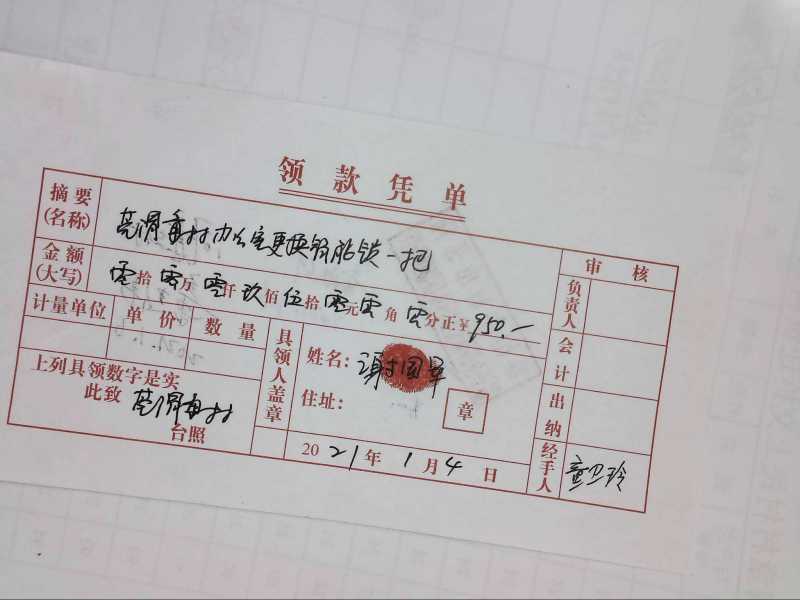 领款凭单
摘要(名称) 村办公室更换智能锁一把
金额(大写) 零拾零万零仟玖佰伍拾零元零角零分正¥950.—
计量单位 单价 数量
上列具领数字是实
此致
台照
具领人盖章
姓名:谢国
住址:
章
2021年1月4日
审核
负责人
会计
出纳
经手人 童卫玲